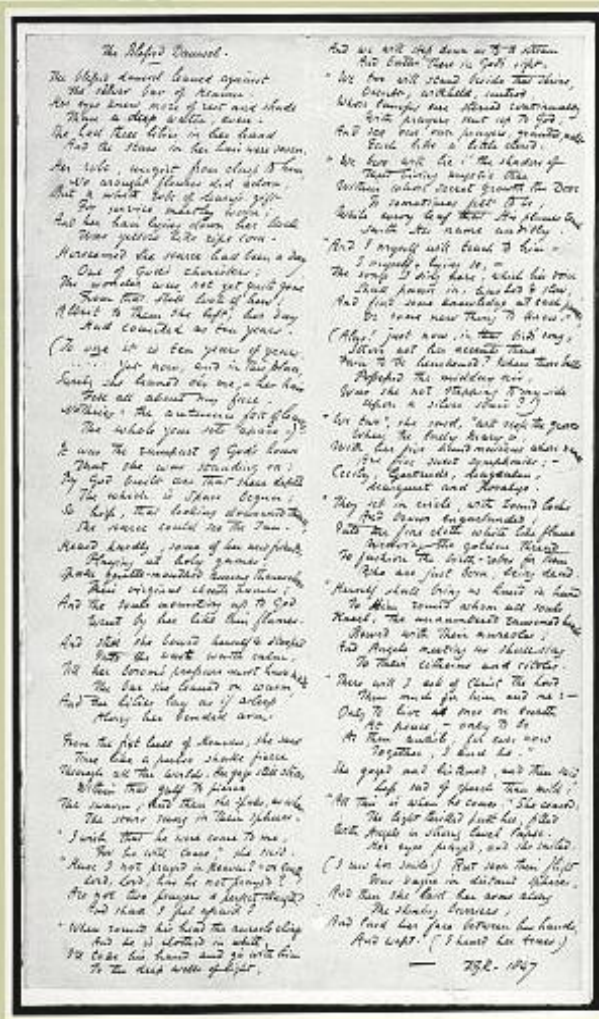 The Blessed Damsel.
The blessed damsel leaned against
The silver bar of Heaven.
Her eyes knew more of rest and shade
Than a deep water, even.
She had three lilies in her hand
And the stars in her hair were seven.
Her robe, ungirt from clasp to hem
No wrought flowers did adorn,
But a white rose of Mary's gift
For service meetly worn;
And her hair lying down her back
Was yellow like ripe corn.
Herseemed she scarce had been a day
One of God's choristers;
The wonder was not yet quite gone
From that still look of hers;
Albeit to them she left, her day
Had counted as ten years.
(To one it is ten years of years.
. . . . . Yet now, and in this place,
Surely she leaned o'er me, – her hair
Fell all about my face.
Nothing: the autumn fall of leaves
The whole year sets apace.)
It was the rampart of God's house
That she was standing on:
By God built over that sheer depth
The which is Space begun;
So high, that looking downward thence
She scarce could see the Sun.
Heard hardly, some of her new friends
Playing at holy games
Spake gentle-mouthed among themselves
Their virginal chaste names;
And the souls mounting up to God
Went by her like thin flames.
And still she bowed herself & stooped
Into the vast waste calm;
Till her bosom's pressure must have made
The bar she leaned on warm
And the lilies lay as if asleep
Along her bended arm.
From the fixt lull of Heaven, she saw
Time like a pulse shake fierce
Through all the worlds. Her gaze still strove
Within that gulf to pierce
The swarm; And then she spoke, as when
The stars sung in their spheres.
"I wish that he were come to me,
For he will come" she said.
"Have I not prayed in Heaven? on earth
Lord, Lord, has he not prayed?
Are not two prayers a perfect strength?
And shall I feel afraid?
"When round his head the aureole clings
And he is clothed in white,
I'll take his hand and go with him
To the deep wells of light,
And we will step down as to a stream
And bathe there in God's sight.
"We two will stand beside that shrine,
Occult, withheld, untrod
Whose lamps are stirred continually
With prayers sent up to God;
And see our own prayers, granted, melt
Each like a little cloud.
"We two will lie i' the shadow of
That living mystic tree
Within whose secret growth the Dove
Is sometimes felt to be,
While every leaf that His plumes touch
Saith His name audibly.
"And I myself will teach to him –
I myself, lying so, –
The songs I sing here, which his voice
Shall pause in, hushed & slow,
And find some knowledge at each pause
Or some new thing to know."
(Alas! just now, in that bird's song,
Strove not her accents there
Fain to be hearkened? When those bells
Possessed the midday air,
Was she not stepping to my side
Upon a silver stair?)
"We two", she said, "will seek the groves
Where the lady Mary is,
With her five handmaidens whose names
Are five sweet symphonies: –
Cecily, Gertrude, Magdalen,
Margaret and Rosalys.
"They sit in circle, with bound locks
And brows engarlanded;
Into the fine cloth white like flame
Weaving the golden thread
To fashion the birth-robes for them
Who are just born, being dead.
"Herself shall bring us hand in hand
To Him round whom all souls
Kneel, the unnumbered ransomed heads
Bowed with their aureoles;
And Angels meeting us shall sing
To their citherns and citoles.
"There will I ask of Christ the Lord
Thus much for him and me: –
Only to live as once on earth
At peace, – only to be
As then awhile, for ever now
Together, I and he."
She gazed and listened, and then said
Less sad of speech than mild:
"All this is when he comes." She ceased;
The light thrilled past her, filled
With Angels in strong level lapse.
Her eyes prayed, and she smiled.
(I saw her smile.) But soon their flight
Was vague in distant spheres.
And then she laid her arms along
The shining barriers,
And laid her face between her hands,
And wept. (I heard her tears.)
— DGR. 1847